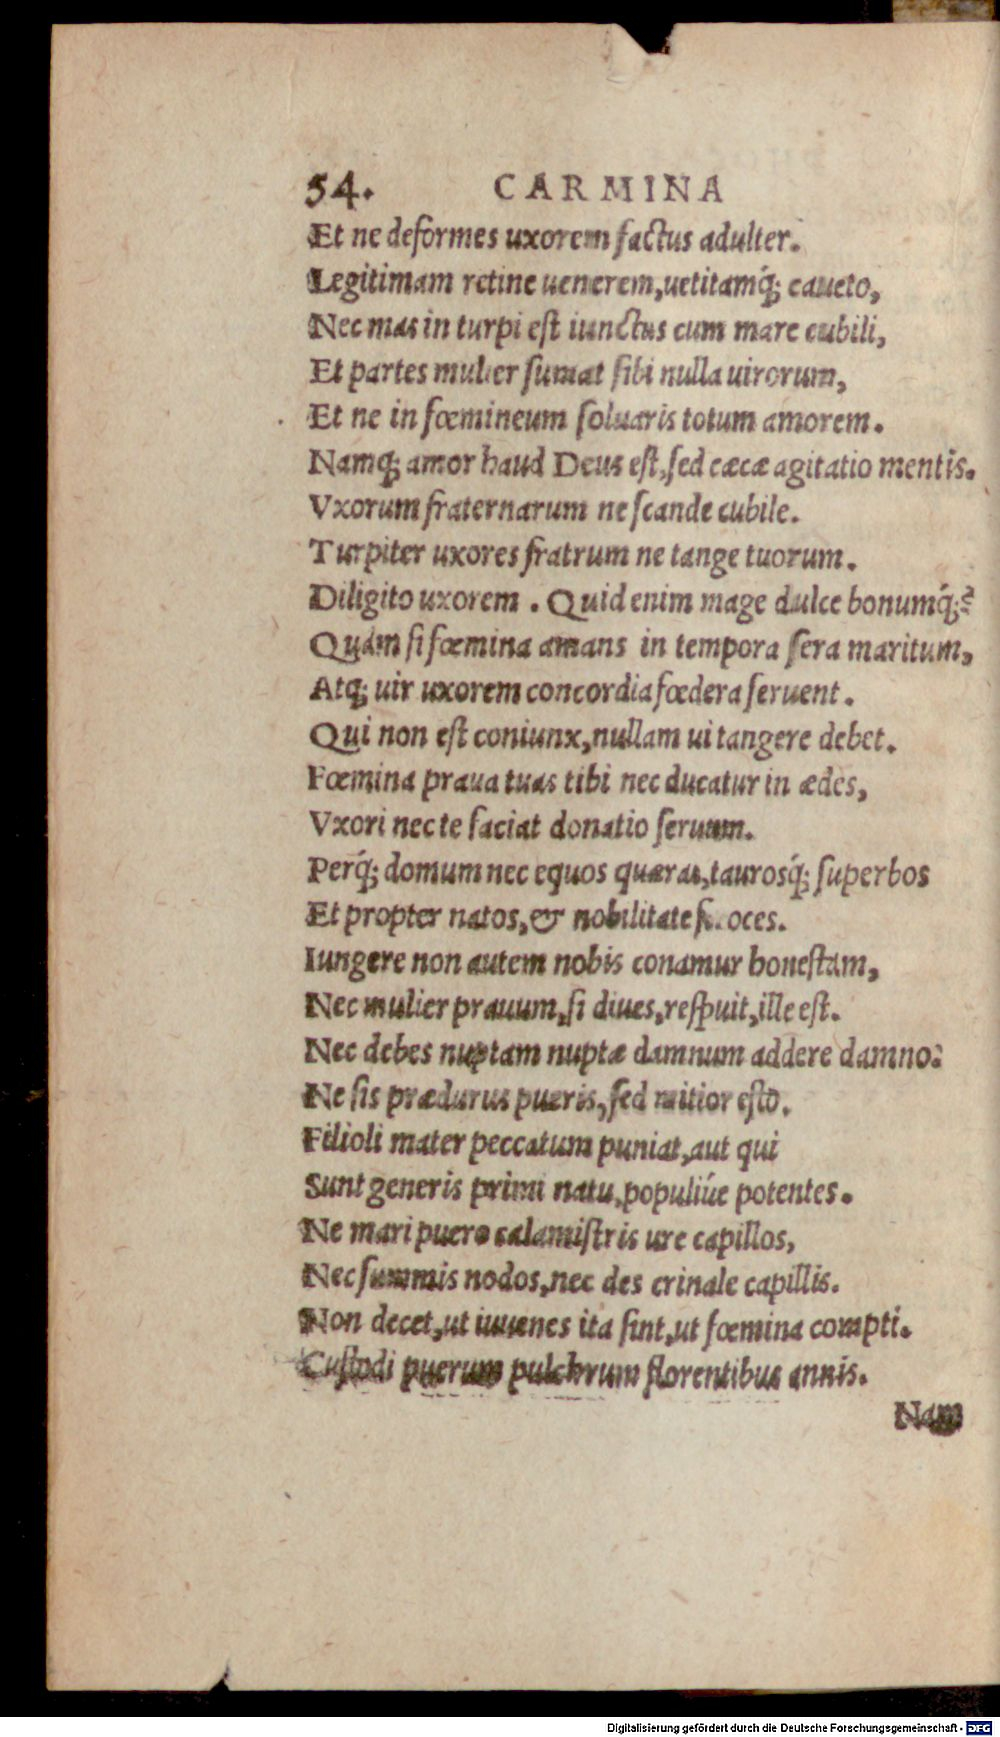 54. CARMINA
Et ne deformes uxorem factus adulter.
Legitimam retine uenerem, uetitamq́; caueto,
Nec mas in turpi est iunctus cum mare cubili,
Et partes mulier sumat sibi nulla uirorum,
Et ne in fœmineum soluaris totum amorem.
Namq; amor haud Deus est, sed cæcæ agitatio mentis.
Vxorum fraternarum ne scande cubile.
Turpiter uxores fratrum ne tange tuorum.
Diligito uxorem. Quid enim mage dulce bonumq́;?
Quàm si fœmina amans in tempora sera maritum,
Atq; uir uxorem concordia fœdera seruent.
Qui non est coniunx, nullam ui tangere debet.
Fœmina praua tuas tibi nec ducatur in ædes,
Vxori nec te faciat donatio seruum.
Perq́; domum nec equos quæras, taurosq́; superbos
Et propter natos, & nobilitate oces.
Iungere non autem nobis conamur honestam,
Nec mulier prauum, si diues, respuit, ille est.
Nec debes nuptam nuptæ damnum addere damno:
Ne sis prædurus pueris, sed mitior esto.
Filioli mater peccatum puniat, aut qui
Sunt generis primi natu, populiúe potentes.
Ne mari puero calamistris ure capillos,
Nec summis nodos, nec des crinale capillis.
Non decet, ut iuuenes ita sint, ut fœmina compti.
Custodi puerum pulchrum florentibus annis.
Nam
Digitalisierung gefördert durch die Deutsche Forschungsgemeinschaft - DFG